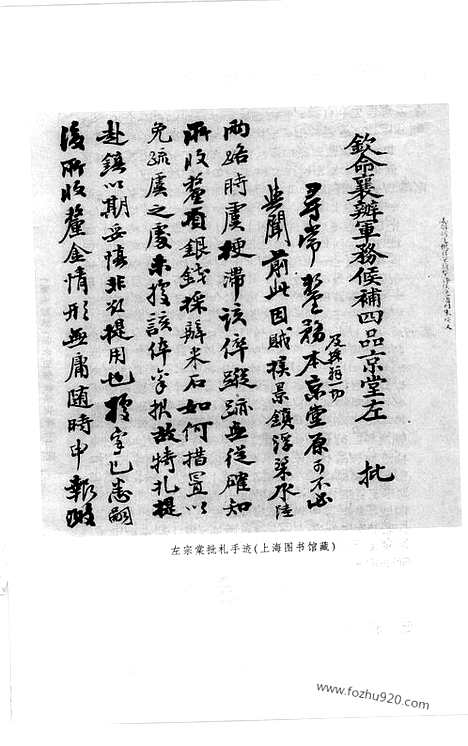 欽命襄辦軍務候補四品京堂左 批
尋常釐務本京堂原可不必
及採辦一切
與聞前此因賊撲景鎮浮梁水陸
兩路時虞梗滯該倅蹤跡無從確知
所收釐項銀錢採辦米石如何措置以
免疏虞之處未據該倅稟報故特札提
赴鎮以期妥慎非欲提用也據稟已悉嗣
後所收釐金情形無庸随時申報繳
左宗棠批札手迹(上海图书馆藏)
www.fozhu920.com